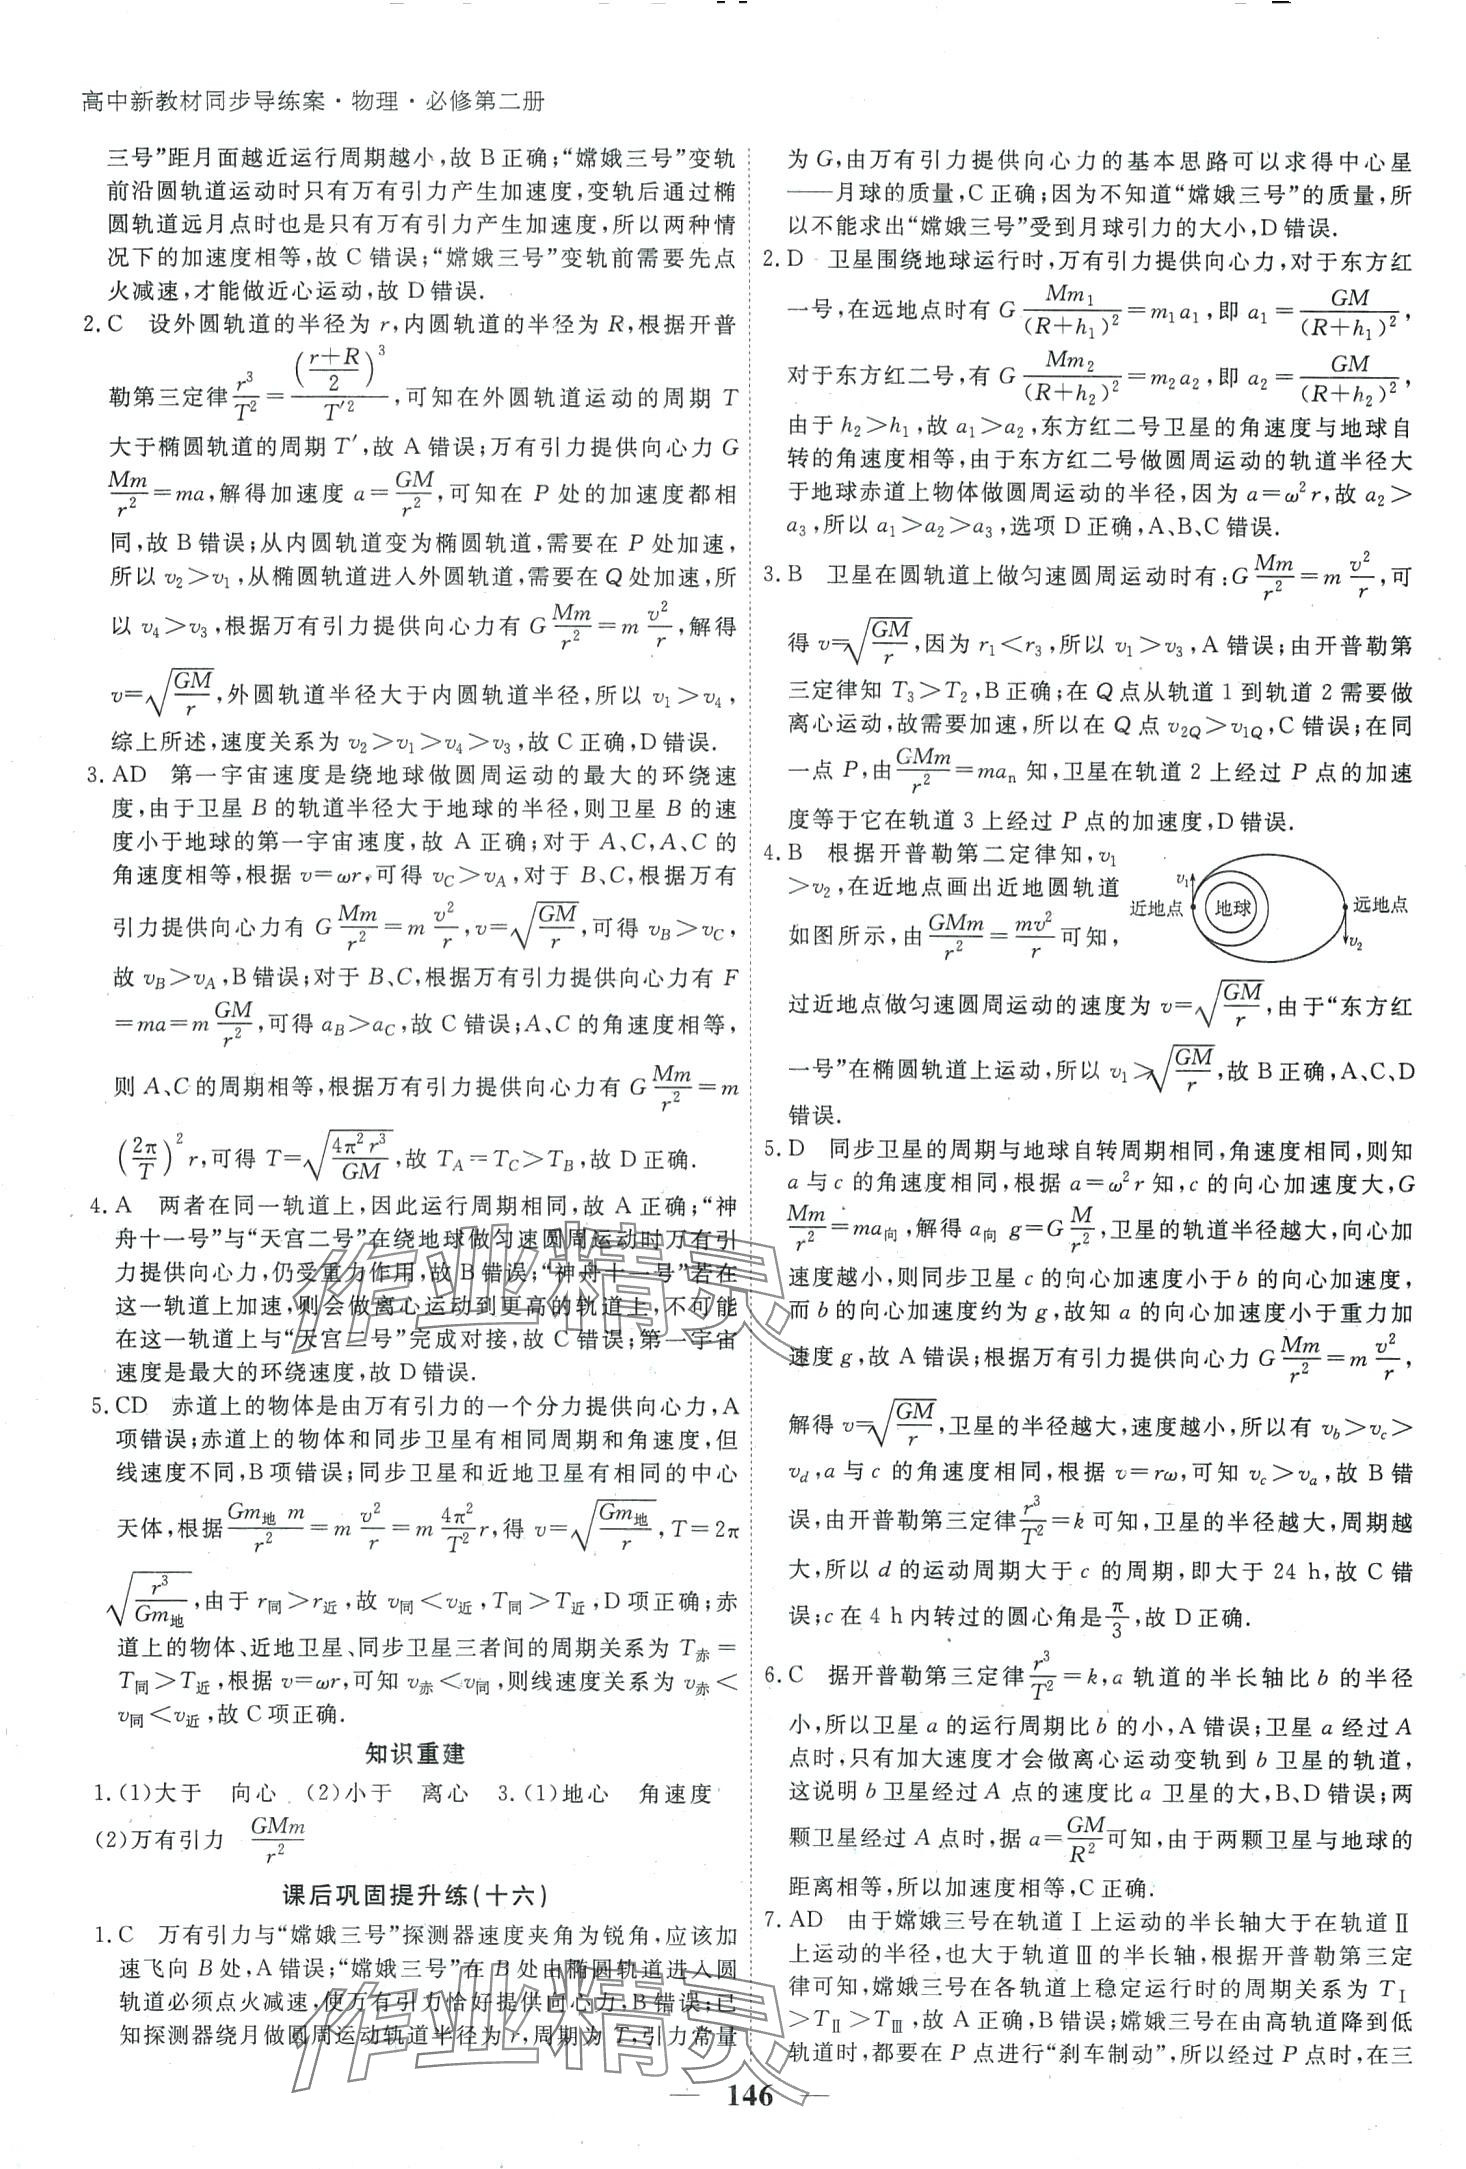 高中新教材同步导练案·物理·必修第二册
三号”距月面越近运行周期越小,故 B 正确;“嫦娥三号”变轨
前沿圆轨道运动时只有万有引力产生加速度,变轨后通过椭
圆轨道远月点时也是只有万有引力产生加速度,所以两种情
况下的加速度相等,故 C 错误;“嫦娥三号”变轨前需要先点
火减速,才能做近心运动,故 D 错误.
2. C 设外圆轨道的半径为 r,内圆轨道的半径为 R,根据开普
勒第三定律 r³/T²=((r+R)/2)³/T′²,可知在外圆轨道运动的周期 T
大于椭圆轨道的周期 T′,故 A 错误;万有引力提供向心力 G
Mm/r²=ma,解得加速度 a=GM/r²,可知在 P 处的加速度都相
同,故 B 错误;从内圆轨道变为椭圆轨道,需要在 P 处加速,
所以 v₂>v₁,从椭圆轨道进入外圆轨道,需要在 Q 处加速,所
以 v₄>v₃,根据万有引力提供向心力有 G Mm/r²=m v²/r,解得
v=√(GM/r),外圆轨道半径大于内圆轨道半径,所以 v₁>v₄,
综上所述,速度关系为 v₂>v₁>v₄>v₃,故 C 正确,D 错误.
3. AD 第一宇宙速度是绕地球做圆周运动的最大的环绕速
度,由于卫星 B 的轨道半径大于地球的半径,则卫星 B 的速
度小于地球的第一宇宙速度,故 A 正确;对于 A、C,A、C 的
角速度相等,根据 v=ωr,可得 v_C>v_A,对于 B、C,根据万有
引力提供向心力有 G Mm/r²=m v²/r,v=√(GM/r),可得 v_B>v_C,
故 v_B>v_A,B 错误;对于 B、C,根据万有引力提供向心力有 F
=ma=m GM/r²,可得 a_B>a_C,故 C 错误;A、C 的角速度相等,
则 A、C 的周期相等,根据万有引力提供向心力有 G Mm/r²=m
(2π/T)² r,可得 T=√(4π²r³/GM),故 T_A=T_C>T_B,故 D 正确.
4. A 两者在同一轨道上,因此运行周期相同,故 A 正确;“神
舟十一号”与“天宫二号”在绕地球做匀速圆周运动时万有引
力提供向心力,仍受重力作用,故 B 错误;“神舟十一号”若在
这一轨道上加速,则会做离心运动到更高的轨道上,不可能
在这一轨道上与“天宫二号”完成对接,故 C 错误;第一宇宙
速度是最大的环绕速度,故 D 错误.
5. CD 赤道上的物体是由万有引力的一个分力提供向心力,A
项错误;赤道上的物体和同步卫星有相同周期和角速度,但
线速度不同,B 项错误;同步卫星和近地卫星有相同的中心
天体,根据 Gm地 m/r²=m v²/r=m 4π²/T² r,得 v=√(Gm地/r),T=2π
√(r³/Gm地),由于 r同>r近,故 v同<v近,T同>T近,D 项正确;赤
道上的物体、近地卫星、同步卫星三者间的周期关系为 T赤=
T同>T近,根据 v=ωr,可知 v赤<v同,则线速度关系为 v赤<
v同<v近,故 C 项正确.
知识重建
1.(1)大于 向心 (2)小于 离心 3.(1)地心 角速度
(2)万有引力 GMm/r²
课后巩固提升练(十六)
1. C 万有引力与“嫦娥三号”探测器速度夹角为锐角,应该加
速飞向 B 处,A 错误;“嫦娥三号”在 B 处由椭圆轨道进入圆
轨道必须点火减速,使万有引力恰好提供向心力,B 错误;已
知探测器绕月做圆周运动轨道半径为 r,周期为 T,引力常量
为 G,由万有引力提供向心力的基本思路可以求得中心星
——月球的质量,C 正确;因为不知道“嫦娥三号”的质量,所
以不能求出“嫦娥三号”受到月球引力的大小,D 错误.
2. D 卫星围绕地球运行时,万有引力提供向心力,对于东方红
一号,在远地点时有 G Mm₁/(R+h₁)²=m₁a₁,即 a₁=GM/(R+h₁)²,
对于东方红二号,有 G Mm₂/(R+h₂)²=m₂a₂,即 a₂=GM/(R+h₂)²,
由于 h₂>h₁,故 a₁>a₂,东方红二号卫星的角速度与地球自
转的角速度相等,由于东方红二号做圆周运动的轨道半径大
于地球赤道上物体做圆周运动的半径,因为 a=ω²r,故 a₂>
a₃,所以 a₁>a₂>a₃,选项 D 正确,A、B、C 错误.
3. B 卫星在圆轨道上做匀速圆周运动时有:G Mm/r²=m v²/r,可
得 v=√(GM/r),因为 r₁<r₃,所以 v₁>v₃,A 错误;由开普勒第
三定律知 T₃>T₂,B 正确;在 Q 点从轨道 1 到轨道 2 需要做
离心运动,故需要加速,所以在 Q 点 v₂Q>v₁Q,C 错误;在同
一点 P,由 GMm/r²=maₙ 知,卫星在轨道 2 上经过 P 点的加速
度等于它在轨道 3 上经过 P 点的加速度,D 错误.
4. B 根据开普勒第二定律知,v₁
>v₂,在近地点画出近地圆轨道
如图所示,由 GMm/r²=mv²/r 可知,
v₁
近地点
地球
远地点
v₂
过近地点做匀速圆周运动的速度为 v=√(GM/r),由于“东方红
一号”在椭圆轨道上运动,所以 v₁>√(GM/r),故 B 正确,A、C、D
错误.
5. D 同步卫星的周期与地球自转周期相同,角速度相同,则知
a 与 c 的角速度相同,根据 a=ω²r 知,c 的向心加速度大,G
Mm/r²=ma向,解得 a向 g=G M/r²,卫星的轨道半径越大,向心加
速度越小,则同步卫星 c 的向心加速度小于 b 的向心加速度,
而 b 的向心加速度约为 g,故知 a 的向心加速度小于重力加
速度 g,故 A 错误;根据万有引力提供向心力 G Mm/r²=m v²/r,
解得 v=√(GM/r),卫星的半径越大,速度越小,所以有 v_b>v_c>
v_d,a 与 c 的角速度相同,根据 v=rω,可知 v_c>v_a,故 B 错
误,由开普勒第三定律 r³/T²=k 可知,卫星的半径越大,周期越
大,所以 d 的运动周期大于 c 的周期,即大于 24 h,故 C 错
误;c 在 4 h 内转过的圆心角是 π/3,故 D 正确.
6. C 据开普勒第三定律 r³/T²=k,a 轨道的半长轴比 b 的半径
小,所以卫星 a 的运行周期比 b 的小,A 错误;卫星 a 经过 A
点时,只有加大速度才会做离心运动变轨到 b 卫星的轨道,
这说明 b 卫星经过 A 点的速度比 a 卫星的大,B、D 错误;两
颗卫星经过 A 点时,据 a=GM/R² 可知,由于两颗卫星与地球的
距离相等,所以加速度相等,C 正确.
7. AD 由于嫦娥三号在轨道Ⅰ上运动的半长轴大于在轨道Ⅱ
上运动的半径,也大于轨道Ⅲ的半长轴,根据开普勒第三定
律可知,嫦娥三号在各轨道上稳定运行时的周期关系为 TⅠ
>TⅡ>TⅢ,故 A 正确;嫦娥三号在由高轨道降到低
轨道时,都要在 P 点进行“刹车制动”,所以经过 P 点时,在三
146
作业精灵
作业精灵